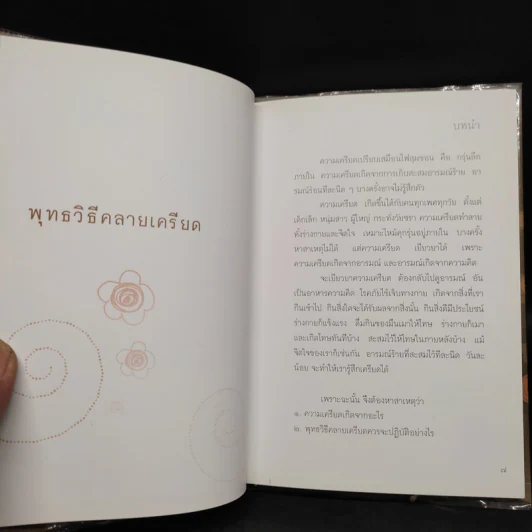 พุทธวิธีคลายเครียด
บทนำ
ความเครียดเปรียบเสมือนไฟสุมขอน คือ กรุ่นลึก
ภายใน ความเครียดเกิดจากการเก็บสะสมอารมณ์ร้าย อา
รมณ์ร้อนทีละนิด ๆ บางครั้งอาจไม่รู้สึกตัว
ความเครียด เกิดขึ้นได้กับคนทุกเพศทุกวัย ตั้งแต่
เด็กเล็ก หนุ่มสาว ผู้ใหญ่ กระทั่งวัยชรา ความเครียดทำลาย
ทั้งร่างกายและจิตใจ เผาะไหม้คุกรุ่นอยู่ภายใน บางครั้ง
หาสาเหตุไม่ได้ แต่ความเครียด เยียวยาได้ เพราะ
ความเครียดเกิดจากอารมณ์ และอารมณ์เกิดจากความคิด
จะเยียวยาความเครียด ต้องกลับไปดูอารมณ์ อัน
เป็นอาหารความคิด โรคภัยไข้เจ็บทางกาย เกิดจากสิ่งที่เรา
กินเข้าไป กินสิ่งใดจะได้รับผลจากสิ่งนั้น กินสิ่งดีมีประโยชน์
ร่างกายก็แข็งแรง ดื่มกินของมึนเมาให้โทษ ร่างกายก็เมา
และเกิดโทษทันทีบ้าง สะสมไว้ให้โทษในภายหลังบ้าง แม้
จิตใจของเราก็เช่นกัน อารมณ์ร้ายที่สะสมไว้ทีละนิด วันละ
น้อย จะทำให้เรารู้สึกเครียดได้
เพราะฉะนั้น จึงต้องหาสาเหตุว่า
๑. ความเครียดเกิดจากอะไร
๒. พุทธวิธีคลายเครียดควรจะปฏิบัติอย่างไร
๗